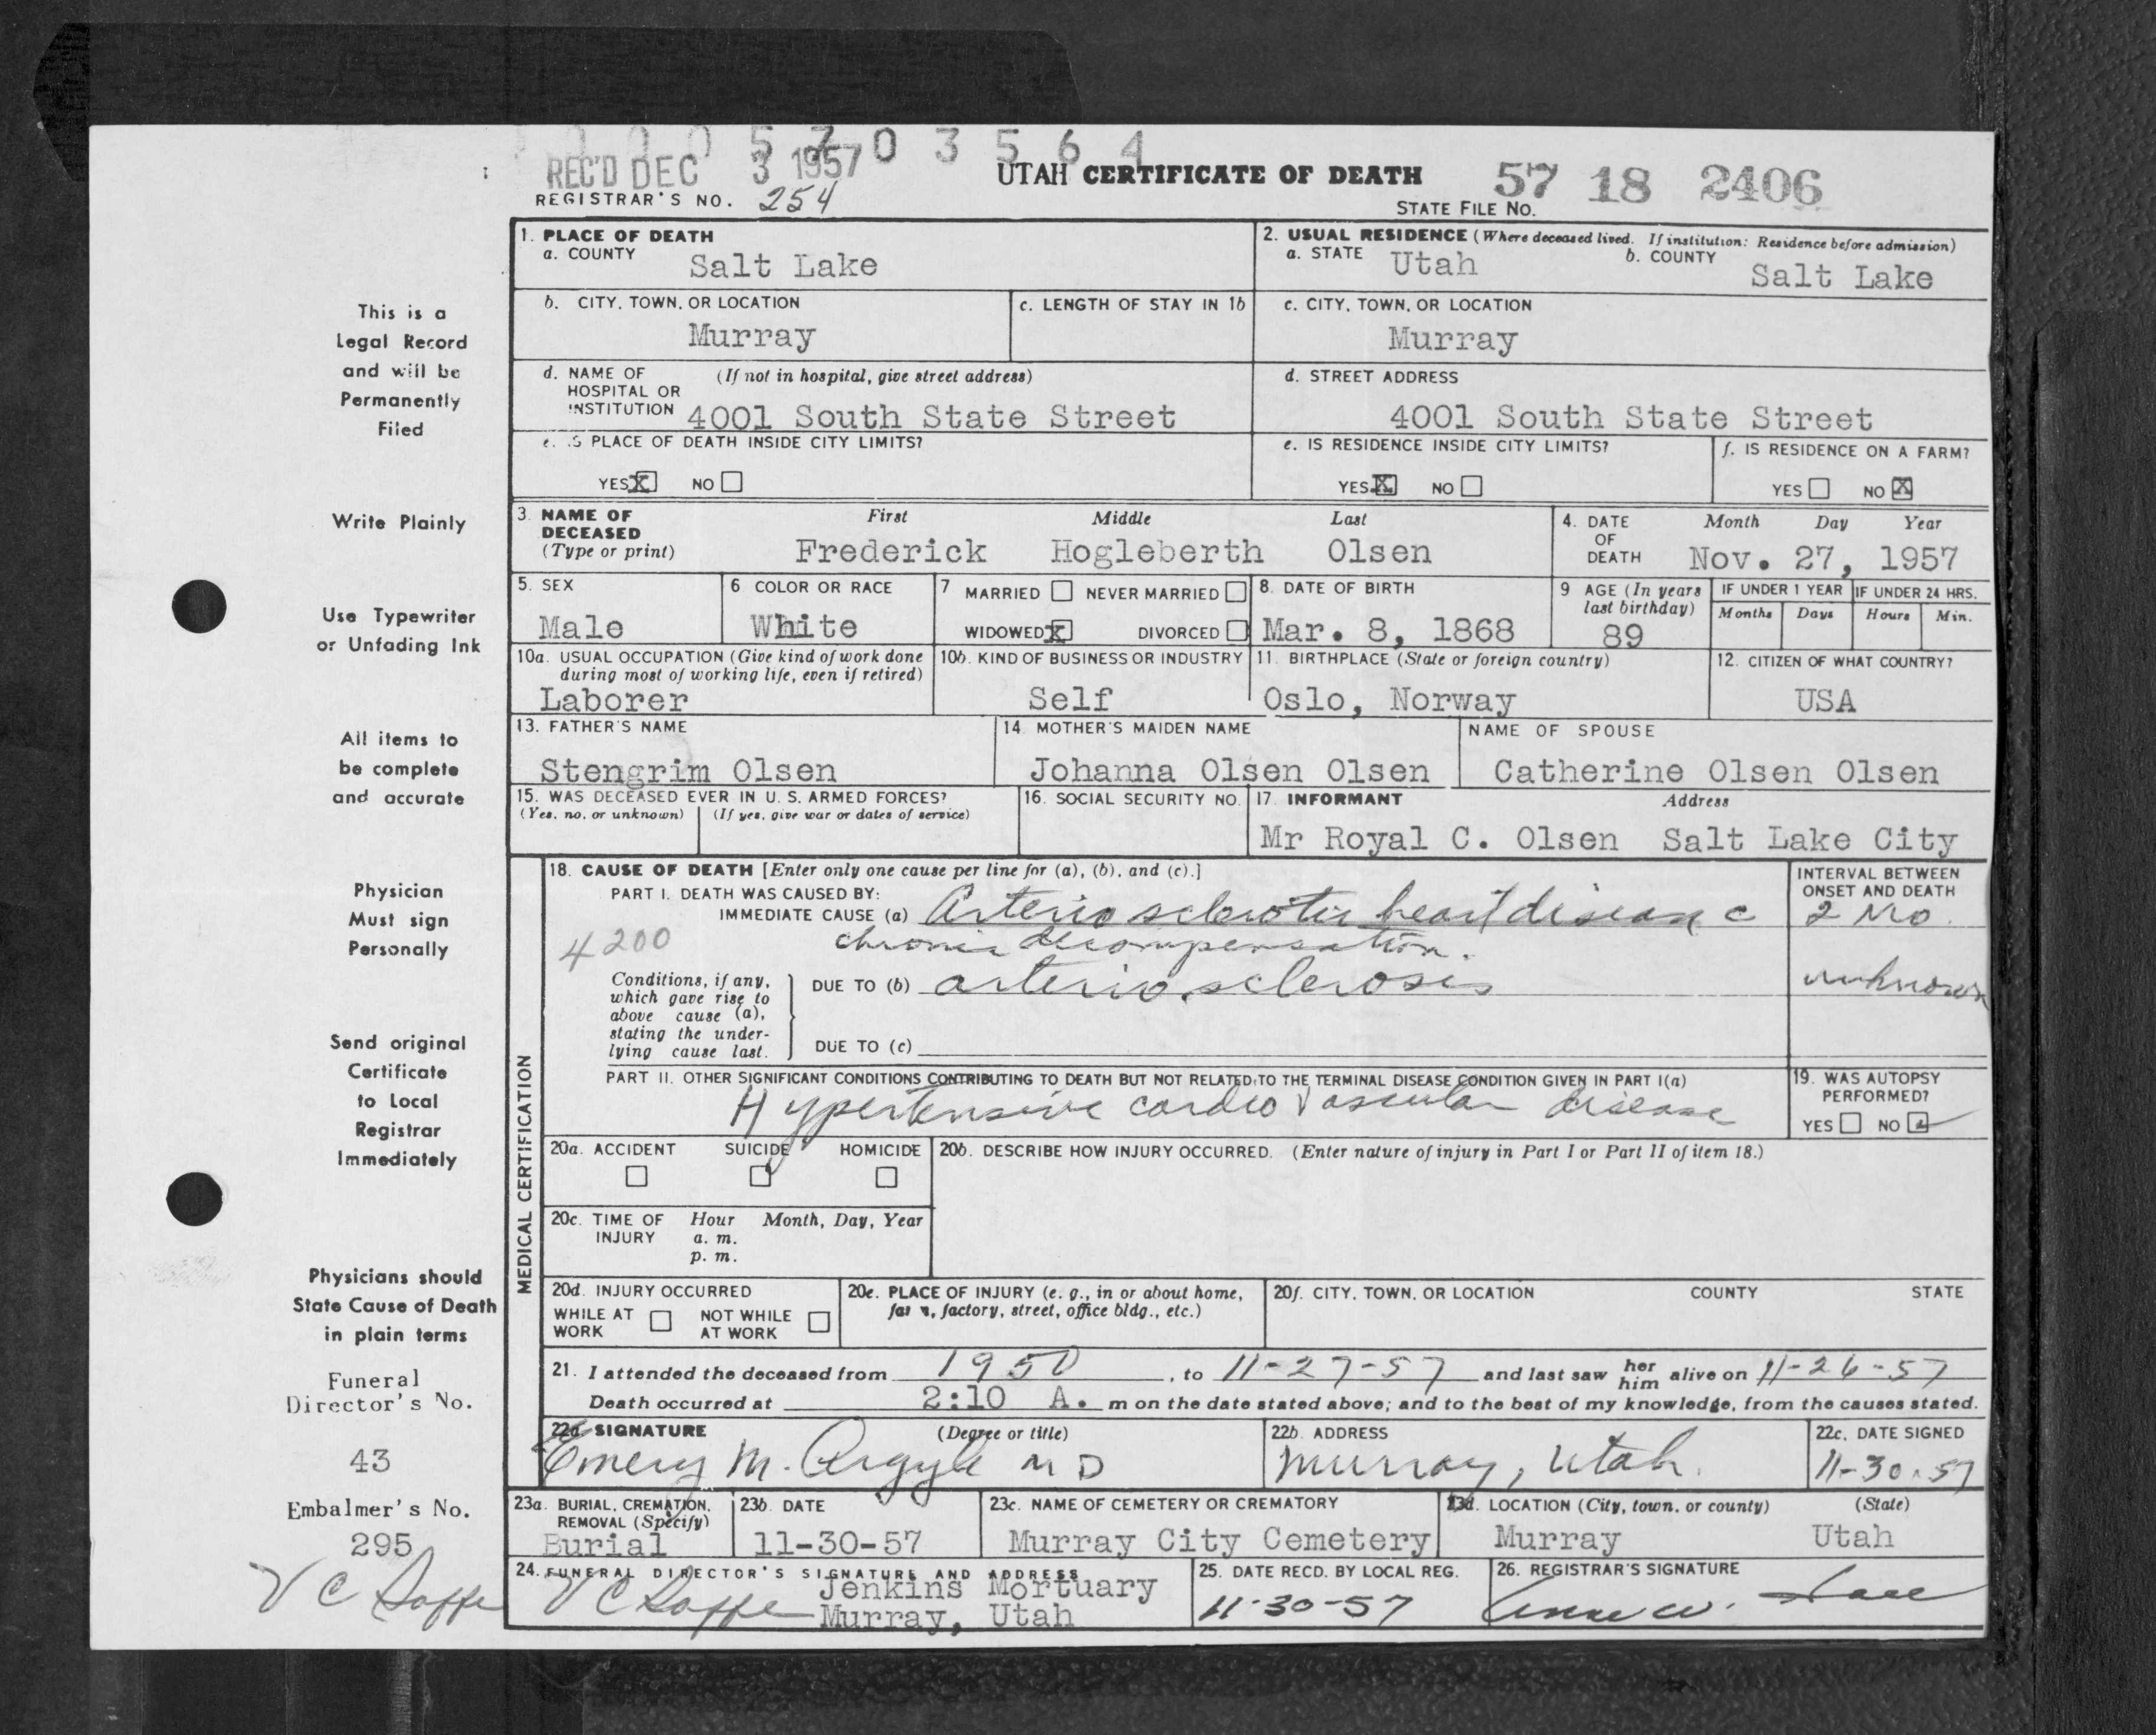 0 0 0 5 7 0 3 5 6 4
REC'D DEC 3 1957
UTAH CERTIFICATE OF DEATH 57 18 2406
REGISTRAR'S NO. 254
STATE FILE NO.
1. PLACE OF DEATH
a. COUNTY Salt Lake
2. USUAL RESIDENCE (Where deceased lived. If institution: Residence before admission)
a. STATE Utah b. COUNTY Salt Lake
b. CITY, TOWN, OR LOCATION Murray
c. LENGTH OF STAY IN 1b
c. CITY, TOWN, OR LOCATION Murray
d. NAME OF HOSPITAL OR INSTITUTION (If not in hospital, give street address)
4001 South State Street
d. STREET ADDRESS
4001 South State Street
e. IS PLACE OF DEATH INSIDE CITY LIMITS?
YES X NO
e. IS RESIDENCE INSIDE CITY LIMITS?
YES X NO
f. IS RESIDENCE ON A FARM?
YES NO X
3. NAME OF DECEASED (Type or print)
First Middle Last
Frederick Hogleberth Olsen
4. DATE OF DEATH
Month Day Year
Nov. 27, 1957
5. SEX
Male
6 COLOR OR RACE
White
7 MARRIED NEVER MARRIED
WIDOWED X DIVORCED
8. DATE OF BIRTH
Mar. 8, 1868
9 AGE (In years last birthday)
89
IF UNDER 1 YEAR
Months Days
IF UNDER 24 HRS.
Hours Min.
10a. USUAL OCCUPATION (Give kind of work done
during most of working life, even if retired)
Laborer
10b. KIND OF BUSINESS OR INDUSTRY
Self
11. BIRTHPLACE (State or foreign country)
Oslo, Norway
12. CITIZEN OF WHAT COUNTRY?
USA
13. FATHER'S NAME
Stengrim Olsen
14. MOTHER'S MAIDEN NAME
Johanna Olsen Olsen
NAME OF SPOUSE
Catherine Olsen Olsen
15. WAS DECEASED EVER IN U. S. ARMED FORCES?
(Yes, no, or unknown) (If yes, give war or dates of service)
16. SOCIAL SECURITY NO.
17. INFORMANT Address
Mr Royal C. Olsen Salt Lake City
MEDICAL CERTIFICATION
18. CAUSE OF DEATH [Enter only one cause per line for (a), (b), and (c).]
INTERVAL BETWEEN
ONSET AND DEATH
PART I. DEATH WAS CAUSED BY:
IMMEDIATE CAUSE (a) Arterio sclerotic heart disease c 2 Mo.
4200 chronic decompensation.
Conditions, if any,
which gave rise to
above cause (a),
stating the under-
lying cause last.
DUE TO (b) arterio sclerosis unknown
DUE TO (c)
PART II. OTHER SIGNIFICANT CONDITIONS CONTRIBUTING TO DEATH BUT NOT RELATED TO THE TERMINAL DISEASE CONDITION GIVEN IN PART I(a)
Hypertensive cardio Vascular disease
19. WAS AUTOPSY
PERFORMED?
YES NO
20a. ACCIDENT SUICIDE HOMICIDE
20b. DESCRIBE HOW INJURY OCCURRED. (Enter nature of injury in Part I or Part II of item 18.)
20c. TIME OF INJURY
Hour Month, Day, Year
a. m.
p. m.
20d. INJURY OCCURRED
WHILE AT WORK NOT WHILE AT WORK
20e. PLACE OF INJURY (e. g., in or about home,
farm, factory, street, office bldg., etc.)
20f. CITY, TOWN, OR LOCATION COUNTY STATE
21. I attended the deceased from 1950, to 11-27-57 and last saw her him alive on 11-26-57
Death occurred at 2:10 A. m on the date stated above; and to the best of my knowledge, from the causes stated.
22a. SIGNATURE (Degree or title)
Emery M. Argyle M D
22b. ADDRESS
Murray, Utah.
22c. DATE SIGNED
11-30-57
23a. BURIAL, CREMATION,
REMOVAL (Specify)
Burial
23b. DATE
11-30-57
23c. NAME OF CEMETERY OR CREMATORY
Murray City Cemetery
23d. LOCATION (City, town, or county) (State)
Murray Utah
24. FUNERAL DIRECTOR'S SIGNATURE AND ADDRESS
Jenkins Mortuary
Murray, Utah
25. DATE RECD. BY LOCAL REG.
11-30-57
26. REGISTRAR'S SIGNATURE
This is a
Legal Record
and will be
Permanently
Filed
Write Plainly
Use Typewriter
or Unfading Ink
All items to
be complete
and accurate
Physician
Must sign
Personally
Send original
Certificate
to Local
Registrar
Immediately
Physicians should
State Cause of Death
in plain terms
Funeral
Director's No.
43
Embalmer's No.
295